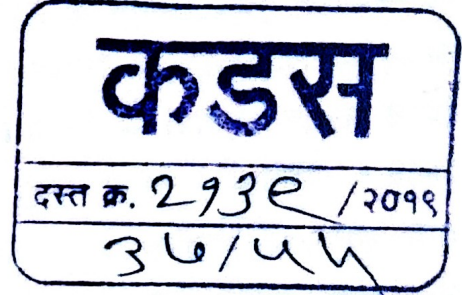 कडस
दस्त क्र. २१३९ /२०१९
३७/५५